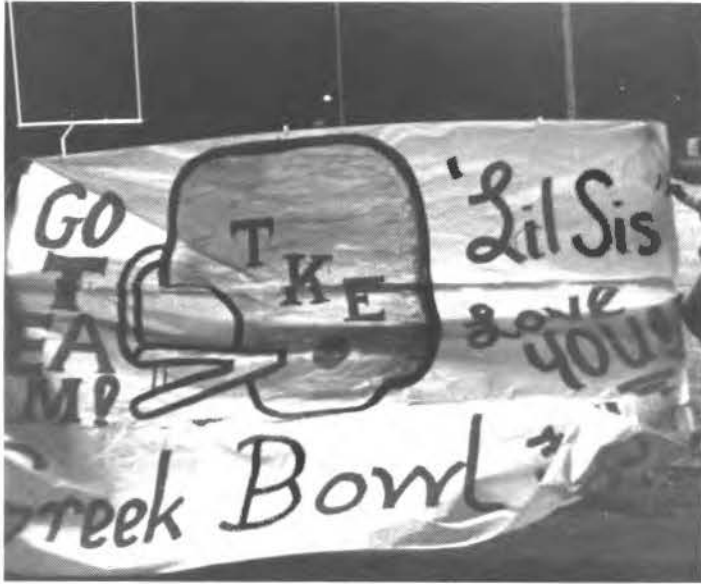 GO
T
EA
M!
T
K
E
'Lil Sis'
Love
YOU!
Greek Bowl